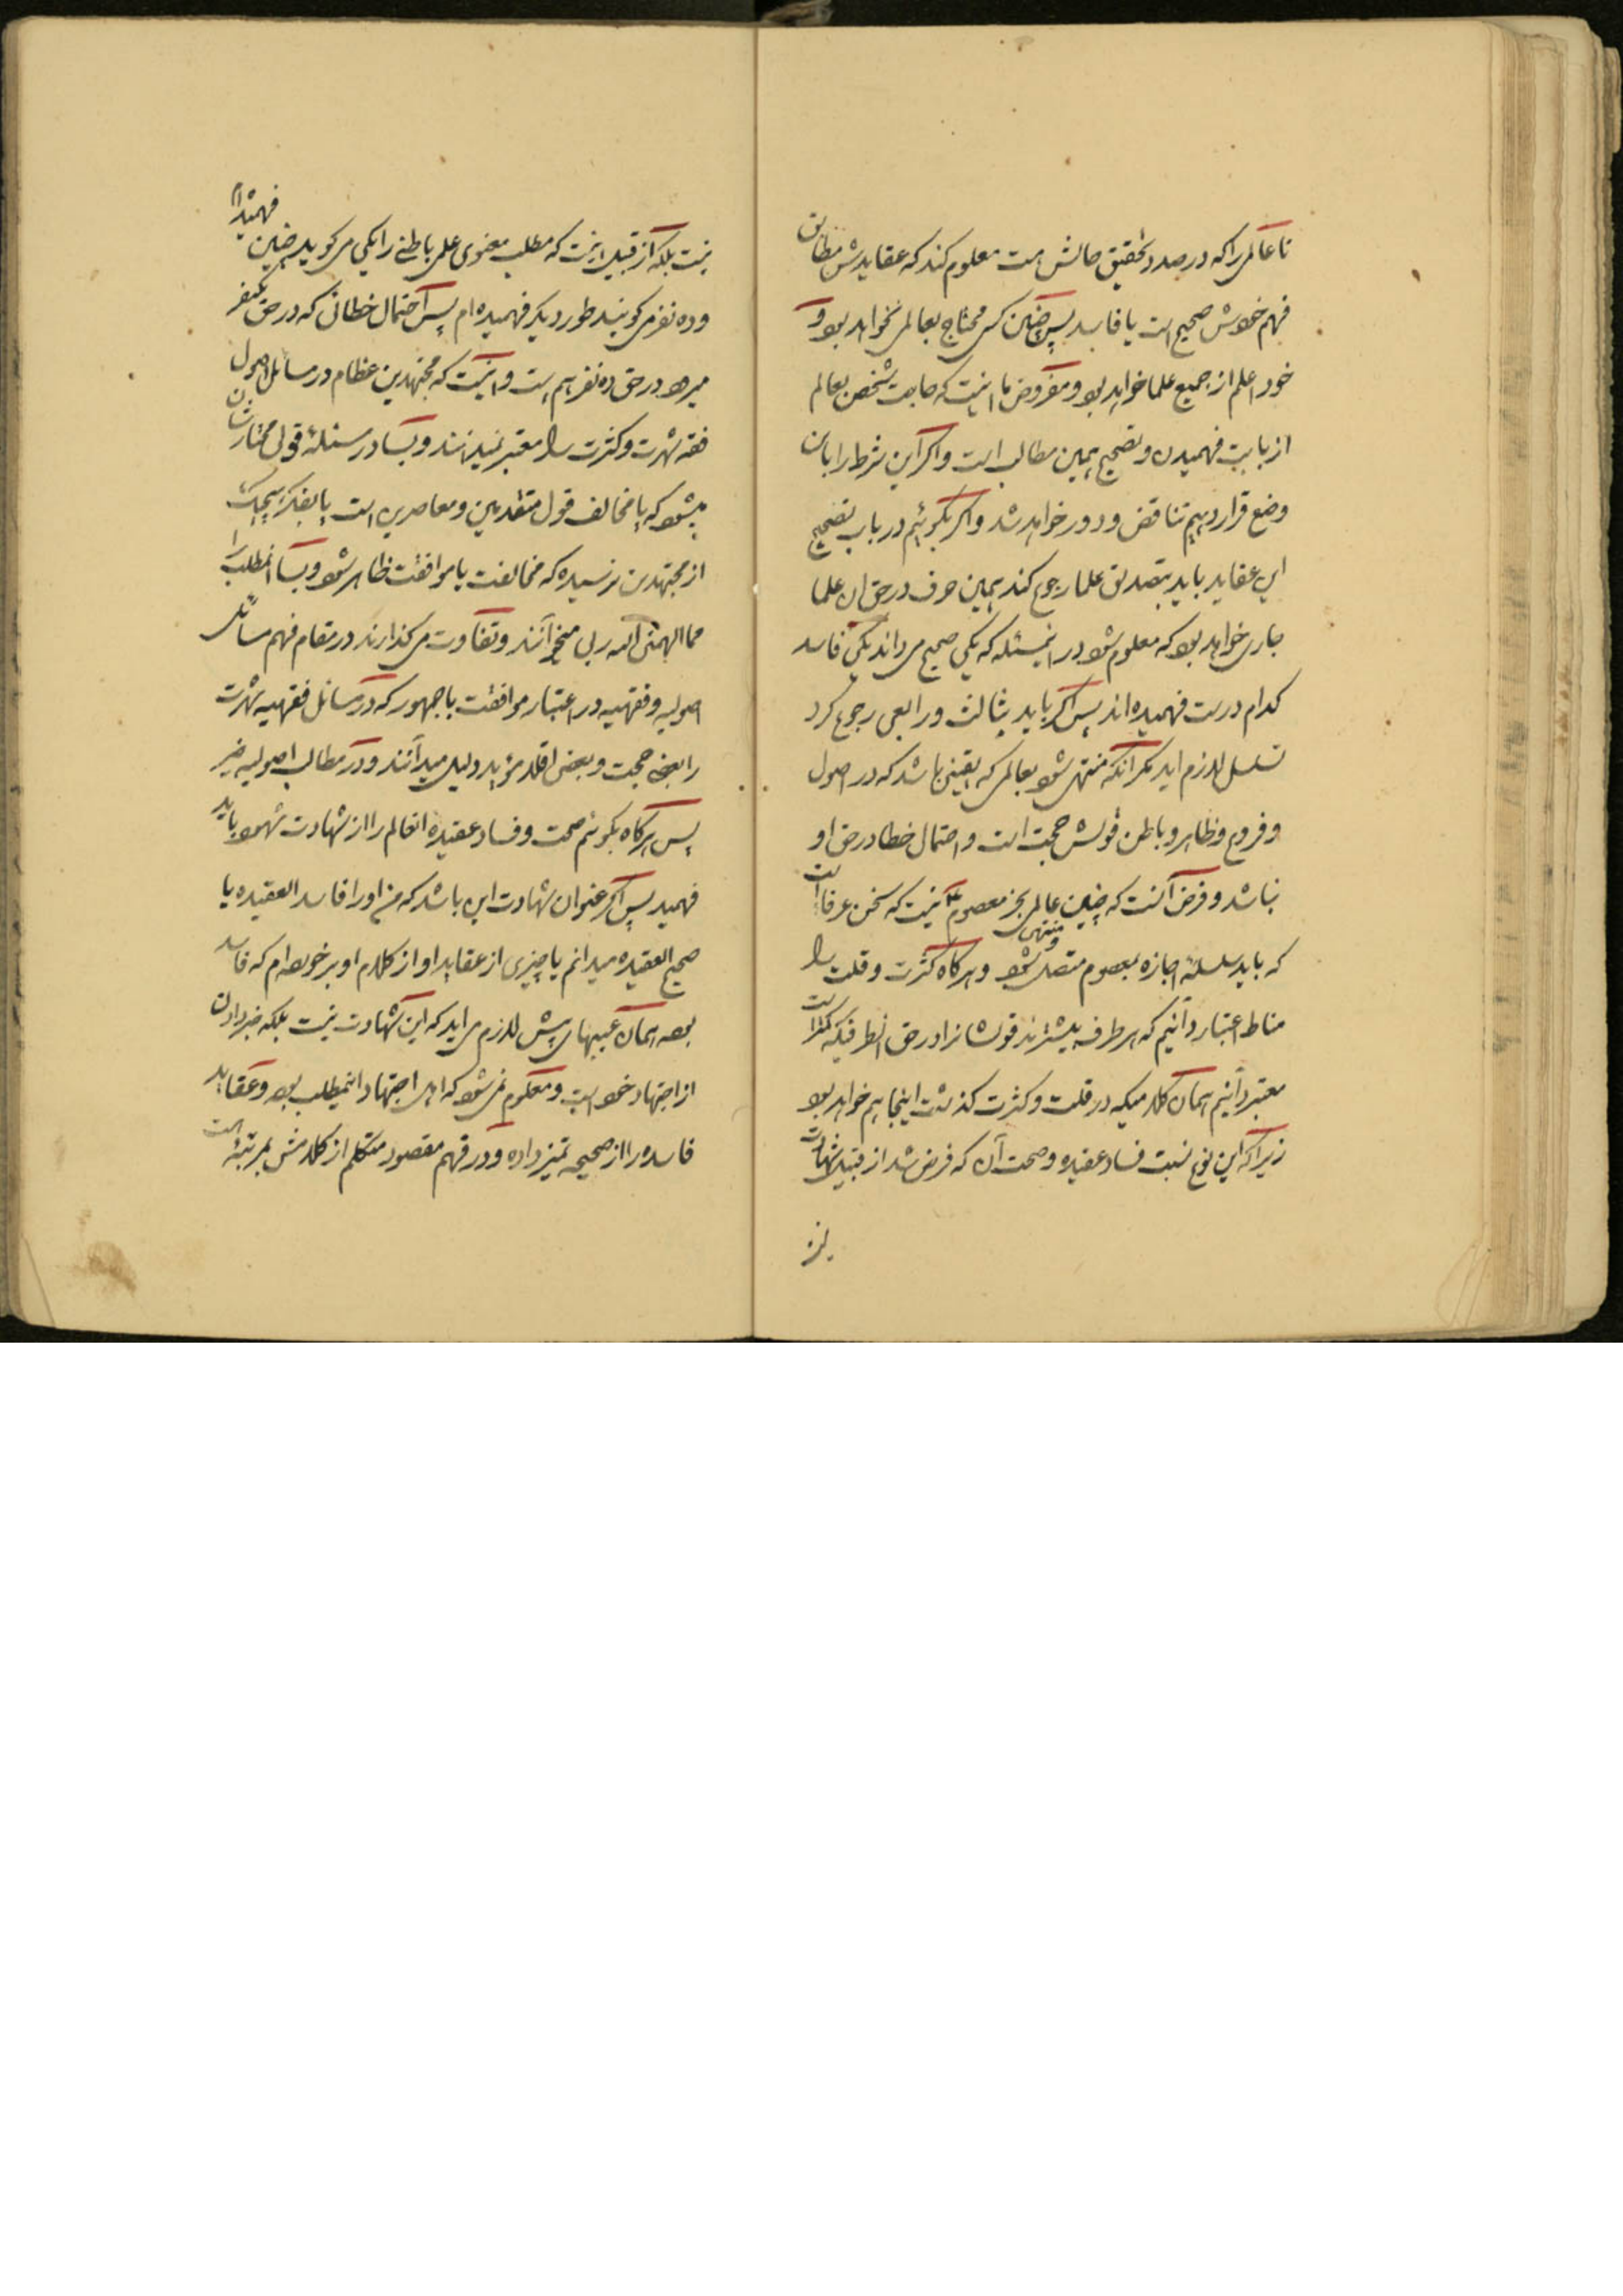 تا عالمی را که در صدد تحقیق حالش هست معلوم کند که عقایدش مطابق
فهم خودش صحیح است یا فاسد پس چنین کسی محتاج بعالمی نخواهد بود و
خود اعلم از جمیع علما خواهد بود و مفروض ما اینست که حاجت شخص بعالم
از بابت فهمیدن و تصحیح همین مطالب است و اگر این شرط را بان
وضع قرار دهیم تناقض و دور خواهد شد و اگر بگوئیم در باب تصحیح
این عقاید باید بتصدیق علما رجوع کند همین حرف در حق ان علما
جاری خواهد بود که معلوم شود در اینمسئله که یکی صحیح می داند یکی فاسد
کدام درست فهمیده اند پس اگر باید بثالث و رابعی رجوع کرد
تسلسل لازم اید مگر آنکه منتهی شود بعالمی که یقینی باشد که در اصول
و فروع و ظاهر و باطن قولش حجت است و احتمال خطا در حق او
نباشد و فرض آنست که چنین عالمی بجز معصوم ع نیست که سخن عرفا است
که باید سلسلۀ اجازه بمعصوم متصل و منتهی شود و هرگاه کثرت و قلت را
مناط اعتبار دانیم که هر طرف بیشترند قولشانرا در حق انطرفیکه کمتر است
معتبر دانیم همان کلامیکه در قلت و کثرت گذشت اینجا هم خواهد بود
زیرا که این نوع نسبت فساد عقیده و صحت آن که فرض شد از قبیل شهادت
نیست بلکه از قبیل اینست که مطلب معنوی علمی باطنی را یکی می گوید چنین فهمیده‌ام
و ده نفر می گویند طور دیگر فهمیده ام پس احتمال خطائی که در حق یکنفر
میرود در حق ده نفر هم هست و اینست که مجتهدین عظام در مسائل اصول
فقه شهرت و کثرت را معتبر نمیدانند و بسا در مسئلۀ قول مختارشان
میشود که یا مخالف قول متقدمین و معاصرین است یا بفکر هیچیک
از مجتهدین نرسیده که مخالفت یا موافقت ظاهر شود و بسا انمطلب را
مما الهمنی الله ربی میخوانند و تفاوت می گذارند در مقام فهم مسائل
اصولیه و فقهیه در اعتبار موافقت با جمهور که در مسائل فقهیه شهرت
را بعضی حجت و بعضی اقلا مؤید دلیل میدانند و در مطالب اصولیه غیر
پس هرگاه بگوئیم صحت و فساد عقیده انعالم را از شهادت شهود باید
فهمید پس اگر عنوان شهادت این باشد که من او را فاسد العقیده یا
صحیح العقیده میدانم یا چیزی از عقاید او از کلام او برخورده ام که فاسد
بوده همان عیبهای پیش لازم می اید که این شهادت نیست بلکه خبر دادن
از اجتهاد خود است و معلوم نمی شود که اهل اجتهاد اینمطلب بوده و عقاید
فاسده را از صحیحه تمیز داده و در فهم مقصود متکلم از کلامش بمرتبۀ است